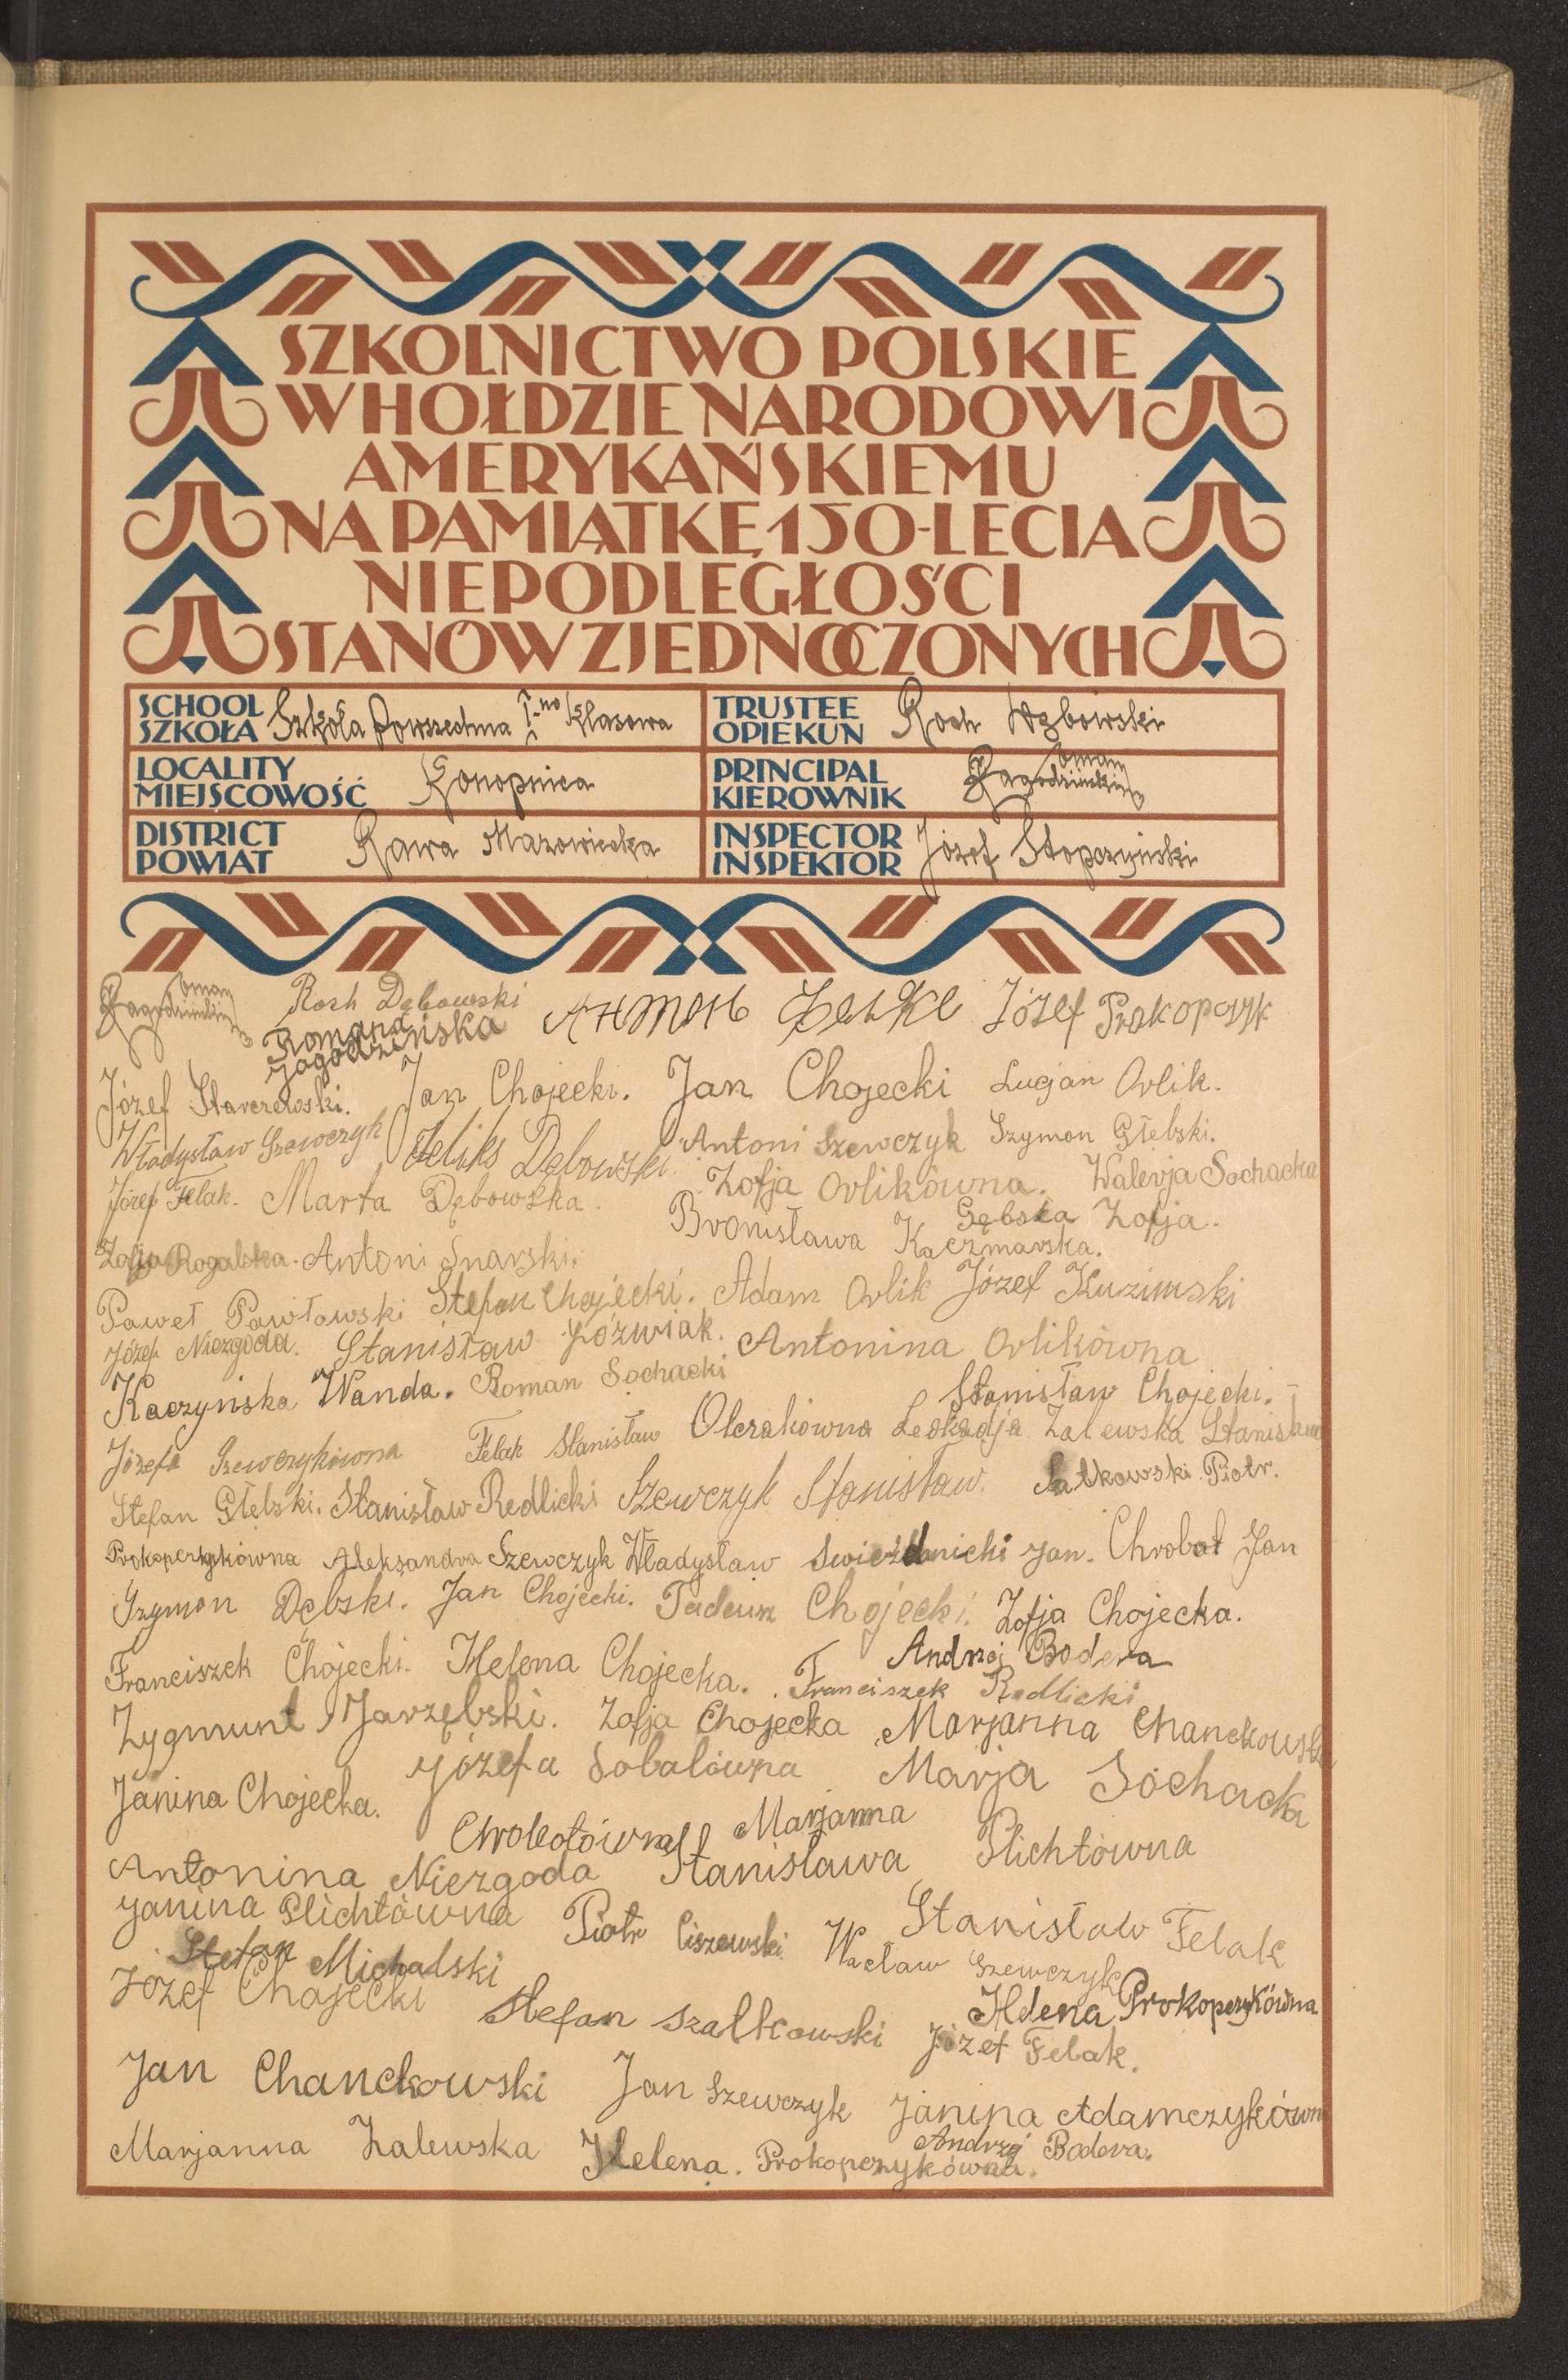 SZKOLNICTWO POLSKIE
W HOŁDZIE NARODOWI
AMERYKAŃSKIEMU
NA PAMIĄTKĘ 150-LECIA
NIEPODLEGŁOŚCI
STANÓW ZJEDNOCZONYCH
SCHOOL
SZKOŁA Szkoła Powszechna 1-no klasowa
TRUSTEE
OPIEKUN Roch Dębowski
LOCALITY
MIEJSCOWOŚĆ Konopnica
PRINCIPAL
KIEROWNIK Roman Jagodziński
DISTRICT
POWIAT Rawa Mazowiecka
INSPECTOR
INSPEKTOR Józef Stopczyński
Roman Jagodziński Roch Dębowski Józef Prokopczyk
Romana Jagodzińska
Józef Starczewski. Jan Chojecki. Jan Chojecki Lucjan Orlik.
Władysław Szewczyk Feliks Dębowski. Antoni Szewczyk Szymon Głębski.
Józef Felak. Marta Dębowska. Zofja Orlikówna. Walerja Sochacka
Bronisława Kaczmarska. Gębska Zofja.
Zofja Rogalska. Antoni Snarski.
Paweł Pawłowski Stefan Chojecki. Adam Orlik Józef Kuzimski
Józef Niezgoda. Stanisław Jóźwiak. Antonina Orlikówna
Kaczyńska Wanda. Roman Sochacki Stanisław Chojecki.
Józefa Szewczykówna Felak Stanisław Olczakówna Leokadja Zalewska Stanisława
Stefan Głębski. Stanisław Redlicki Szewczyk Stanisław. Sałkowski Piotr.
Prokopczykówna Aleksandra Szewczyk Władysław Świeżdnicki Jan. Chrobot Jan
Szymon Dębski. Jan Chojecki. Tadeusz Chojecki. Zofja Chojecka.
Franciszek Chojecki. Helena Chojecka. Franciszek Redlicki Andrzej Bodera
Zygmunt Jarzębski. Zofja Chojecka Marjanna Chanckowska
Janina Chojecka. Józefa Sobalówna Marja Sochacka
Chrobotówna Marjanna
Antonina Niezgoda Stanisława Plichtówna
Janina Plichtówna Piotr Ciszewski Wacław Szewczyk Stanisław Felak
Stefan Michalski
Józef Chojecki Stefan Szałkowski Józef Felak. Helena Prokopczykówna
Jan Chanckowski Jan Szewczyk Janina Adamczykówna
Marjanna Zalewska Helena Prokopczykówna. Andrzej Bodera.